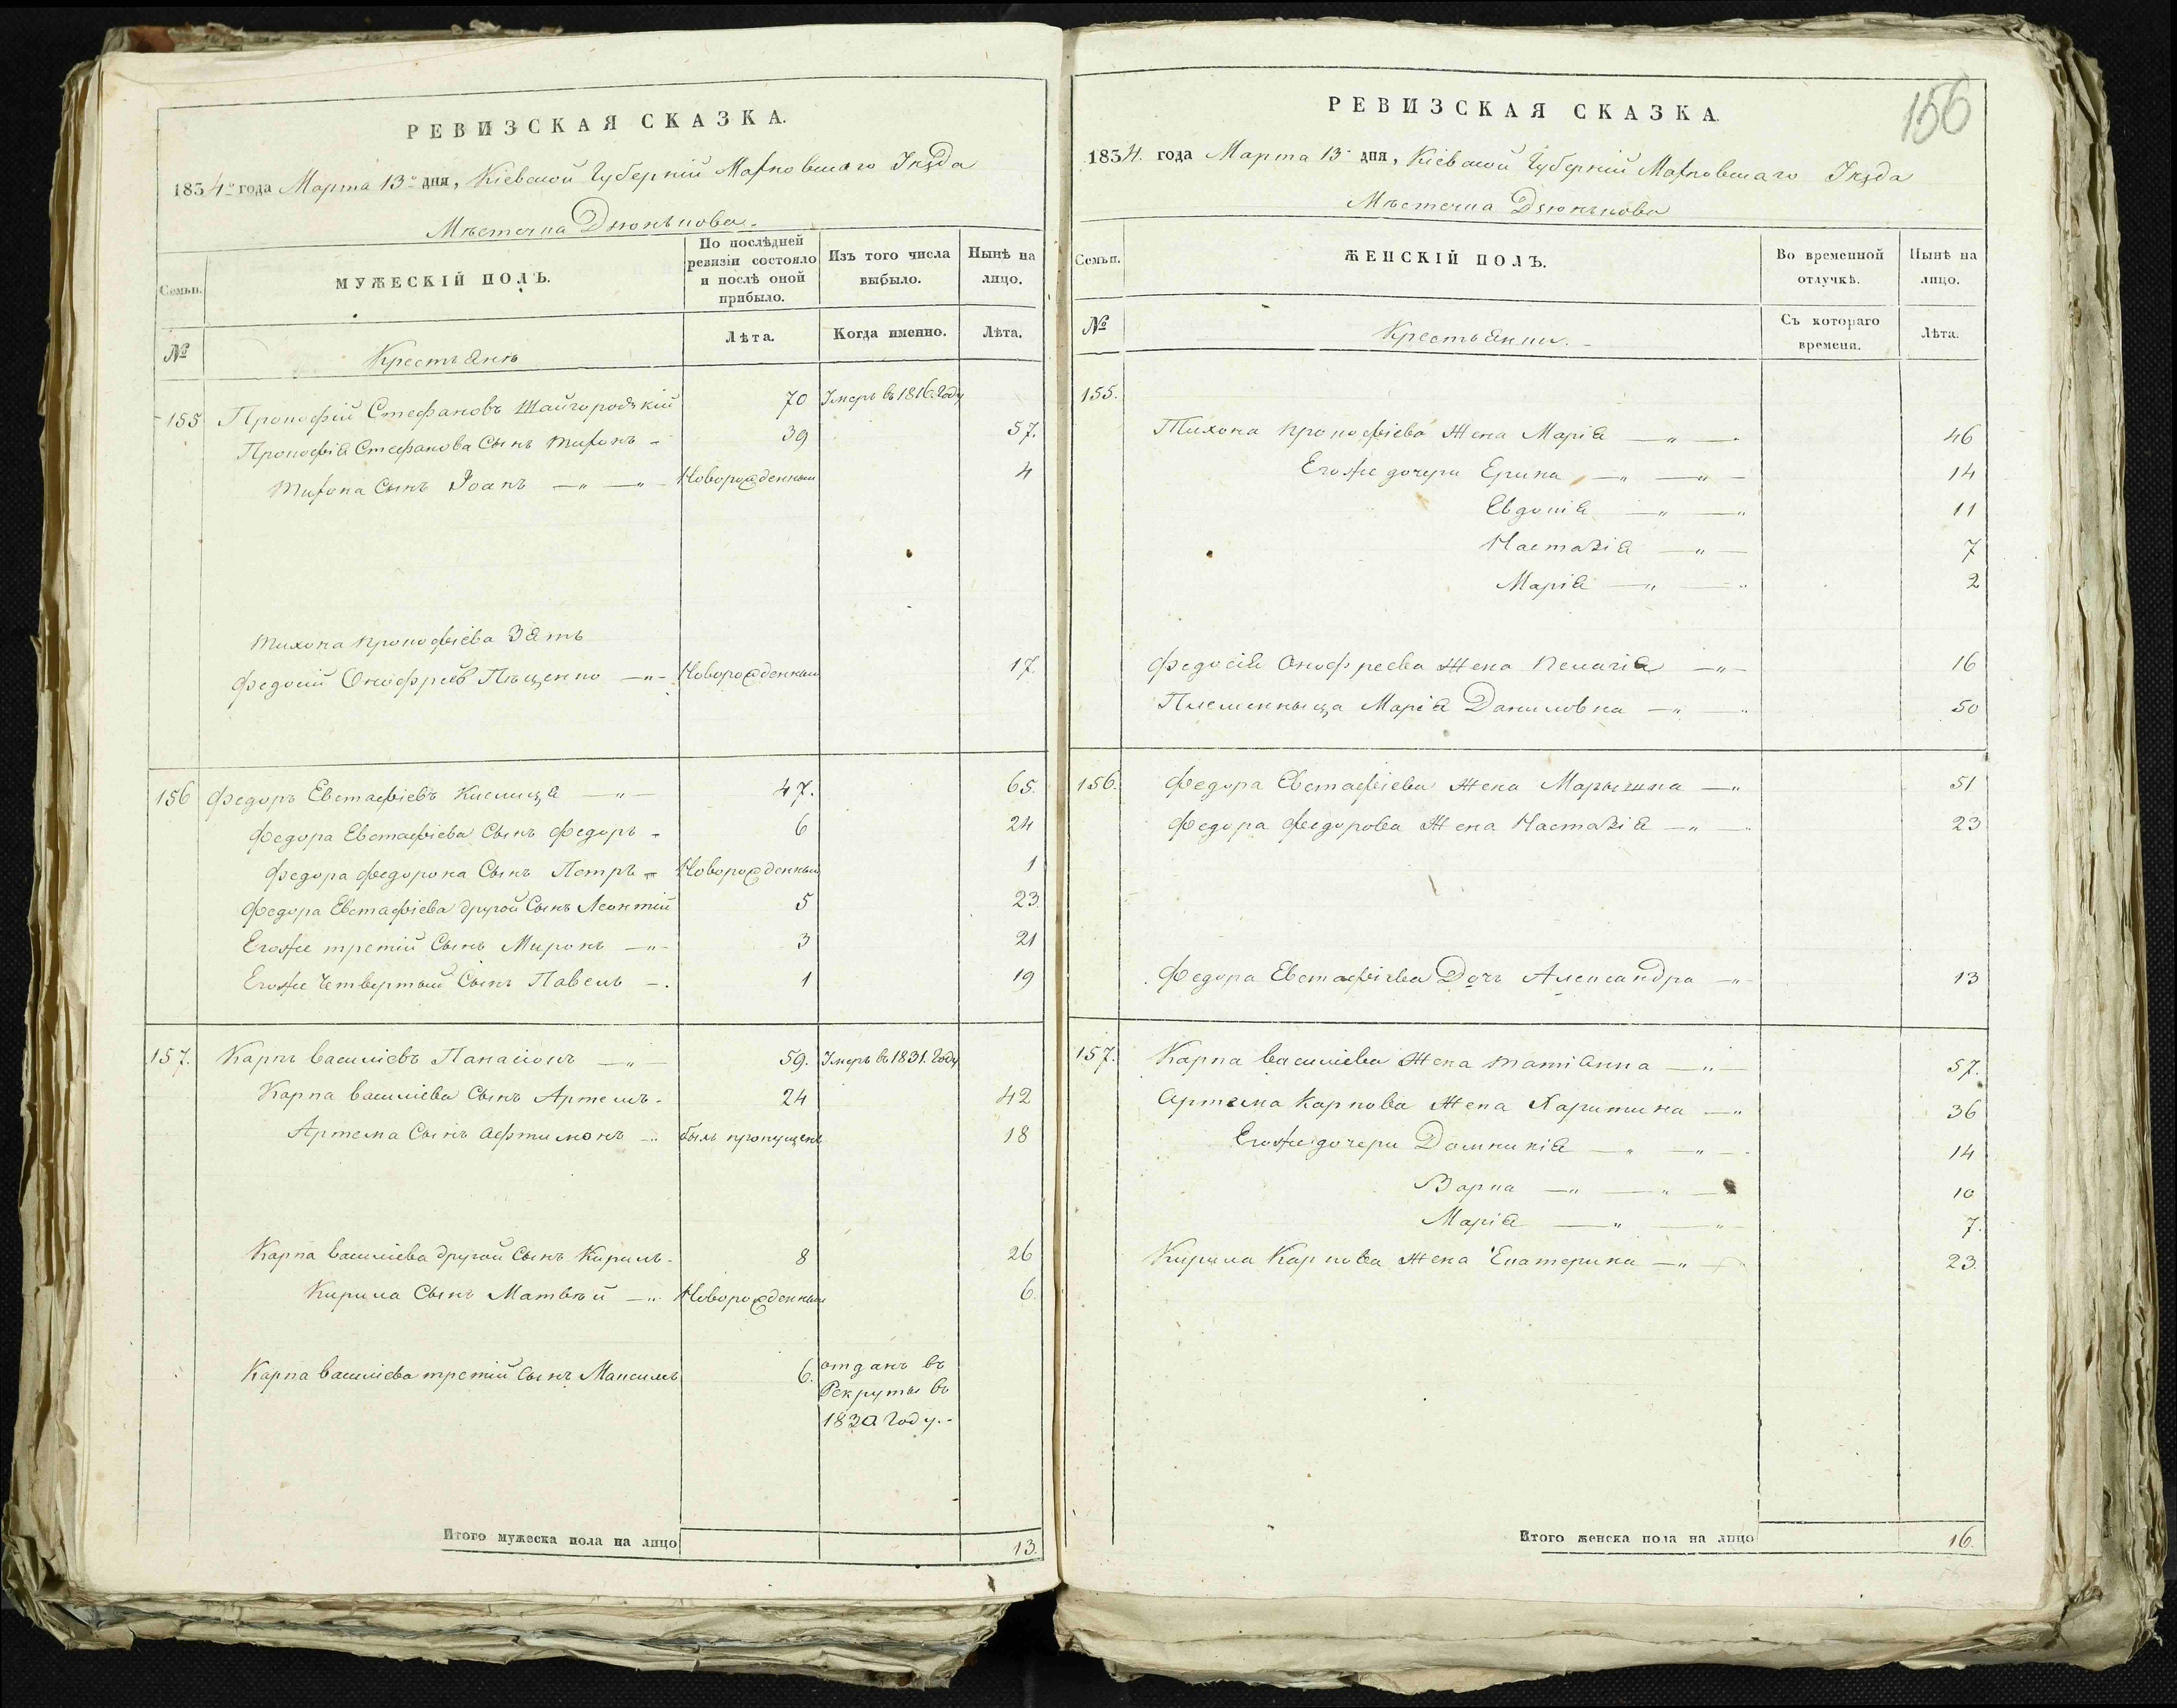 РЕВИЗСКАЯ СКАЗКА.
1834го года Марта 13го дня, Кіевской Губерніи Махновскаго Уѣзда
Мѣстечка Дзюнькова.
Семьи.
МУЖЕСКІЙ ПОЛЪ.
По послѣдней ревизіи состояло и послѣ оной прибыло.
Изъ того числа выбыло.
Нынѣ на лицо.
№
Крестьянъ
Лѣта.
Когда именно.
Лѣта.
155 Прокофій Стефановъ Шайгородзкій 70 Умеръ въ 1816. Году
Прокофія Стефанова Сынъ Тихонъ - 39 57.
Тихона Сынъ Іоанъ — " — " — Новорожденный 4
Тихона Прокофіева Зять
Федосій Онофреевъ Пѣщенко — " - Новорожденный 17.
156 Федоръ Евстафіевъ Кислица — " — 47. 65.
Федора Евстафіева Сынъ Федоръ - 6 24
Федора Федорока Сынъ Петръ - Новорожденный 1
Федора Евстафіева другой Сынъ Леонтій 5 23.
Егоже третій Сынъ Миронъ — " - 3 21
Егоже Четвертый Сынъ Павелъ — . 1 19
157. Карпъ Василіевъ — " — 59. Умеръ въ 1831. Году
Карпа Василіева Сынъ Артемъ - 24 42
Артема Сынъ Афтимонъ — " былъ пропущенъ 18
Карпа Василіева другой Сынъ Кирилъ - 8 26
Кирила Сынъ Матвѣй — " Новорожденный 6.
Карпа Василіева третій Сынъ Максимъ 6. отданъ въ
Рекруты въ
Году. -
Итого мужеска пола на лицо 13.
156
РЕВИЗСКАЯ СКАЗКА.
1834. года Марта 13го дня, Кіевской Губерніи Махновскаго Уѣзда
Мѣстечка Дзюнькова
Семьи.
ЖЕНСКІЙ ПОЛЪ.
Во временной отлучкѣ.
Нынѣ на лицо.
№
Крестьянки. -
Съ котораго времени.
Лѣта.
155.
Тихона Прокофіева Жена Марія — " — 46
Егоже дочери Ерина — " — " — 14
Евдокія — " — " 11
Настазія — " — 7
Марія — " — " 2
Федосія Онофреева Жена Пелагія — " — 16
Племенныца Марія Даниловна — " — " 50
156. Федора Евстафіева Жена Марышка — " 51
Федора Федорова Жена Настазія — " — " 23
Федора Евстафіева Дочь Александра — " 13
157. Карпа Василіева Жена Татіанна — " — 57.
Артема Карпова Жена Харитина — " 36
Егоже дочери Домникія — " — " — 14
Варка — " — " — 10
Марія — " — " 7.
Кирила Карпова Жена Екатерина — " — 23.
Итого женска пола на лицо 16.